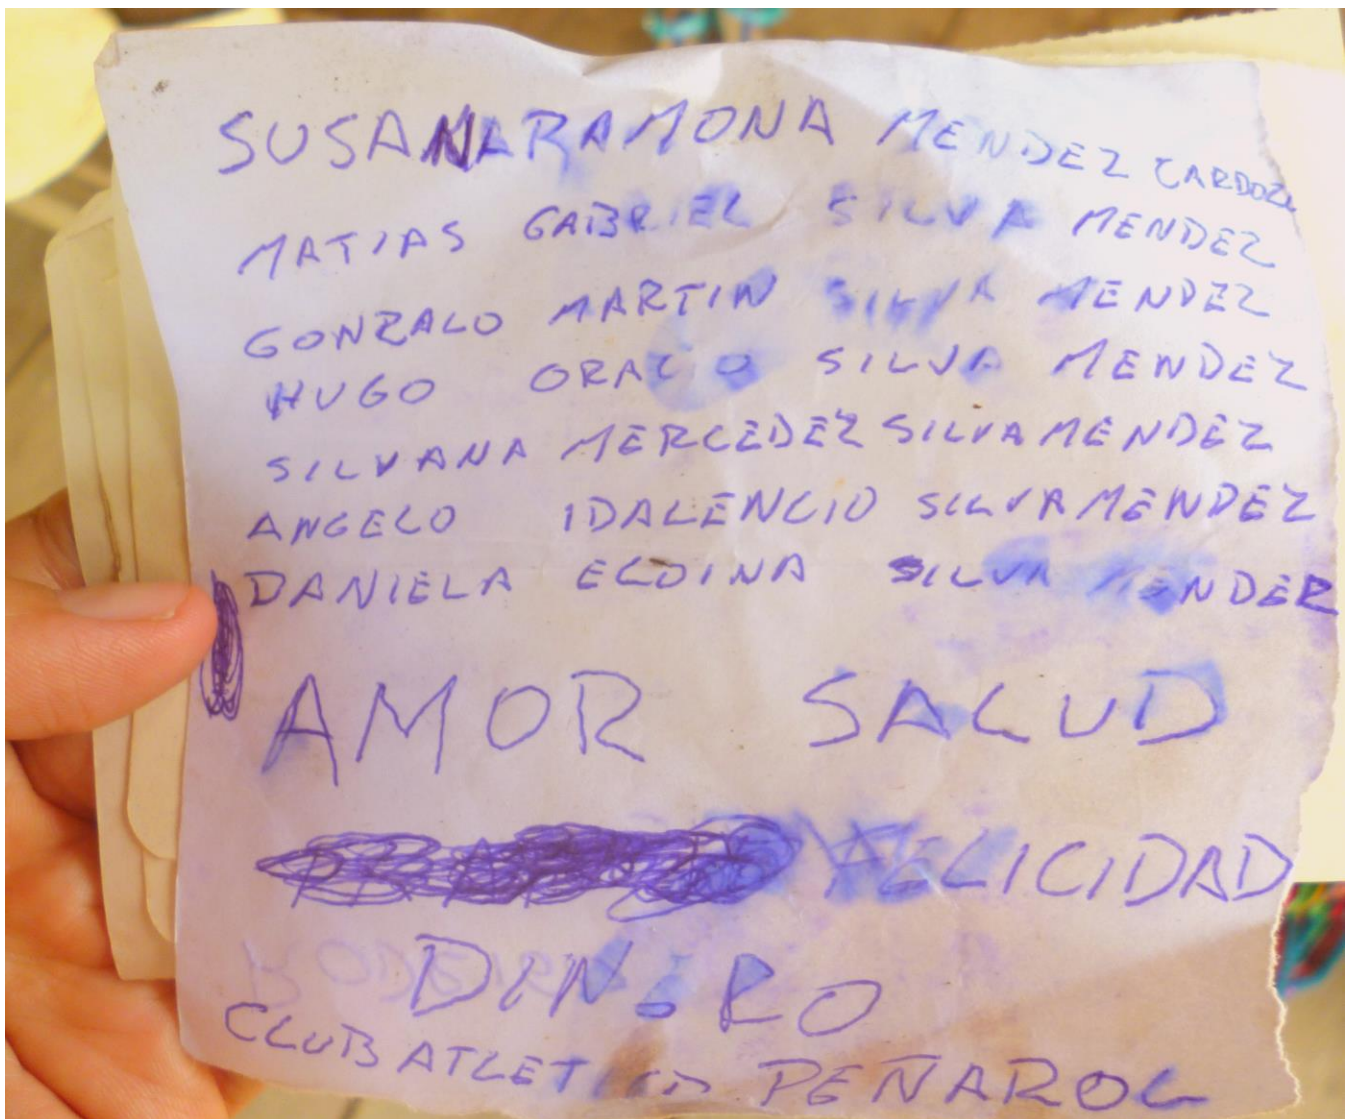 SUSANA RAMONA MENDEZ CARDOZO
MATIAS GABRIEL SILVA MENDEZ
GONZALO MARTIN SILVA MENDEZ
HUGO ORACIO SILVA MENDEZ
SILVANA MERCEDEZ SILVA MENDEZ
ANGELO IDALENCIO SILVA MENDEZ
DANIELA ELDINA SILVA MENDEZ
AMOR SALUD
FELICIDAD
DINERO
CLUB ATLETICO PEÑAROL